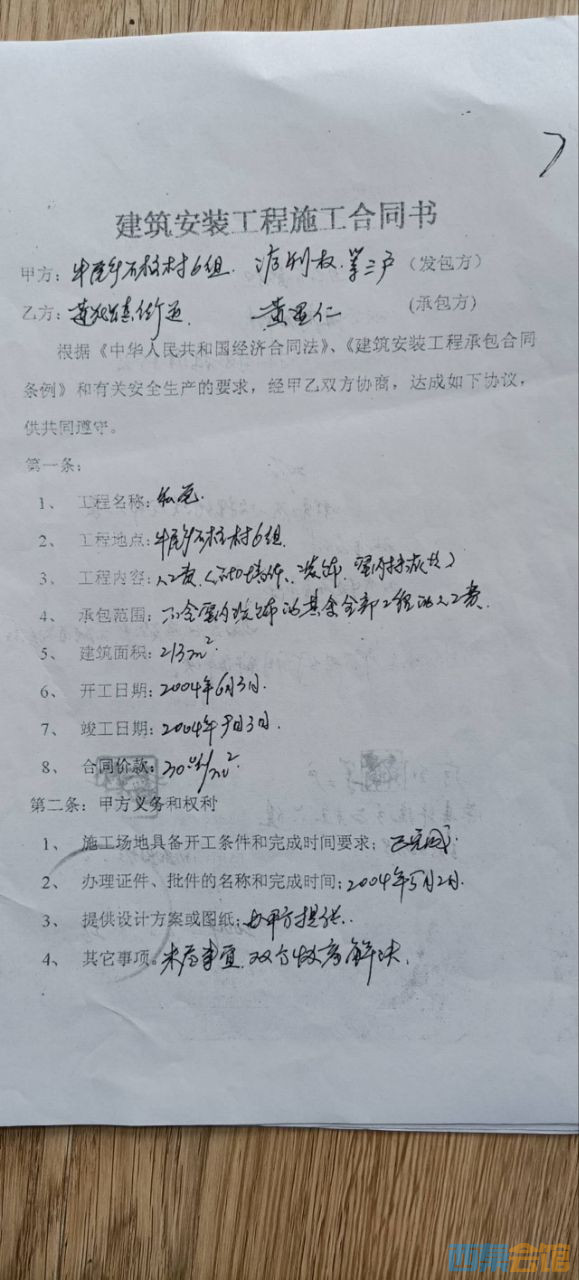 建筑安装工程施工合同书
甲方：牛尾乡石柱村6组 第三户（发包方）
乙方： 黄显仁 （承包方）
根据《中华人民共和国经济合同法》、《建筑安装工程承包合同
条例》和有关安全生产的要求，经甲乙双方协商，达成如下协议，
供共同遵守。
第一条：
1、 工程名称：
2、 工程地点：牛尾乡石柱村6组
3、 工程内容：人工费
4、 承包范围：不含室内装饰的其余全部工程的人工费.
5、 建筑面积：213m².
6、 开工日期：2004年6月3日.
7、 竣工日期：2004年9月3日.
8、 合同价款：/m²
第二条：甲方义务和权利
1、 施工场地具备开工条件和完成时间要求：已完成.
2、 办理证件、批件的名称和完成时间：2004年5月2日.
3、 提供设计方案或图纸：由甲方提供.
4、 其它事项。未尽事宜，双方协商解决.
西祠会馆